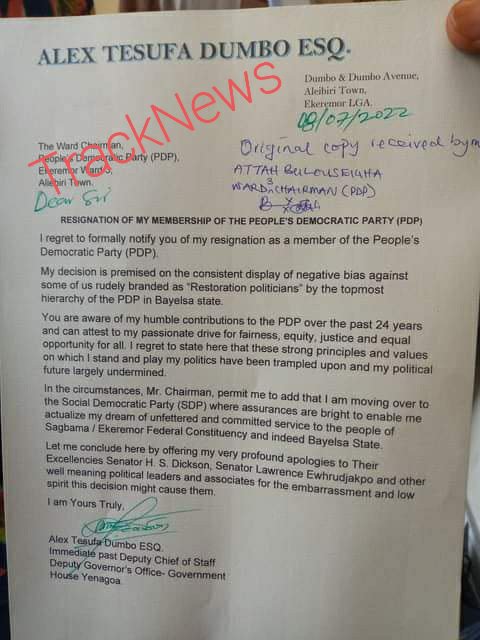 ALEX TESUFA DUMBO ESQ.
Dumbo & Dumbo Avenue,
Aleibiri Town,
Ekeremor LGA.
08/07/2022
The Ward Chairman,
People's Democratic Party (PDP),
Ekeremor Ward 3,
Aliebiri Town.
Dear Sir
Original copy received by m
ATTAH
WARD 3 CHAIRMAN (PDP)
TrackNews
RESIGNATION OF MY MEMBERSHIP OF THE PEOPLE'S DEMOCRATIC PARTY (PDP)
I regret to formally notify you of my resignation as a member of the People's
Democratic Party (PDP).
My decision is premised on the consistent display of negative bias against
some of us rudely branded as "Restoration politicians" by the topmost
hierarchy of the PDP in Bayelsa state.
You are aware of my humble contributions to the PDP over the past 24 years
and can attest to my passionate drive for fairness, equity, justice and equal
opportunity for all. I regret to state here that these strong principles and values
on which I stand and play my politics have been trampled upon and my political
future largely undermined.
In the circumstances, Mr. Chairman, permit me to add that I am moving over to
the Social Democratic Party (SDP) where assurances are bright to enable me
actualize my dream of unfettered and committed service to the people of
Sagbama / Ekeremor Federal Constituency and indeed Bayelsa State.
Let me conclude here by offering my very profound apologies to Their
Excellencies Senator H. S. Dickson, Senator Lawrence Ewhrudjakpo and other
well meaning political leaders and associates for the embarrassment and low
spirit this decision might cause them.
I am Yours Truly,
Alex Tesufa Dumbo ESQ.
Immediate past Deputy Chief of Staff
Deputy Governor's Office- Government
House Yenagoa.